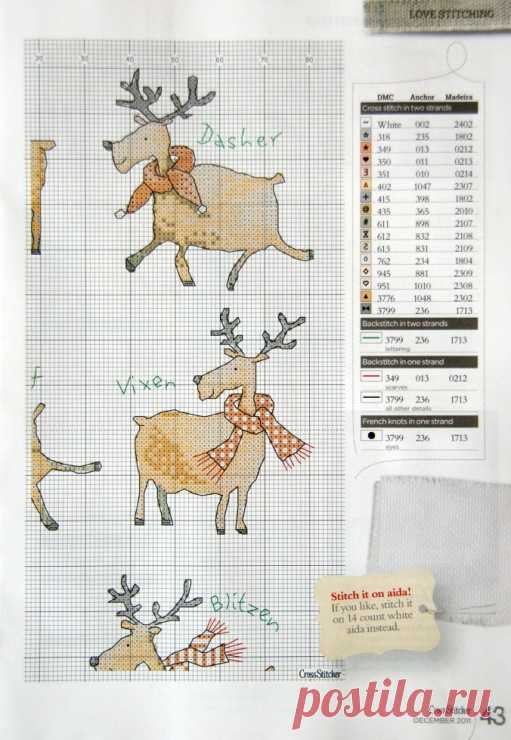 LOVE STITCHING
20 30 40 50 60 70 80
Dasher
Vixen
f
Blitzen
CrossStitcher
DMC Anchor Madeira
Cross stitch in two strands
White 002 2402
318 235 1802
349 013 0212
350 011 0213
351 010 0214
402 1047 2307
415 398 1802
435 365 2010
611 898 2107
612 832 2108
613 831 2109
762 234 1804
945 881 2309
951 1010 2308
3776 1048 2302
3799 236 1713
Backstitch in two strands
3799 236 1713
lettering
Backstitch in one strand
349 013 0212
scarves
3799 236 1713
all other details
French knots in one strand
3799 236 1713
eyes
Stitch it on aida!
If you like, stitch it
on 14 count white
aida instead.
CrossStitcher
DECEMBER 2011 43
postila.ru